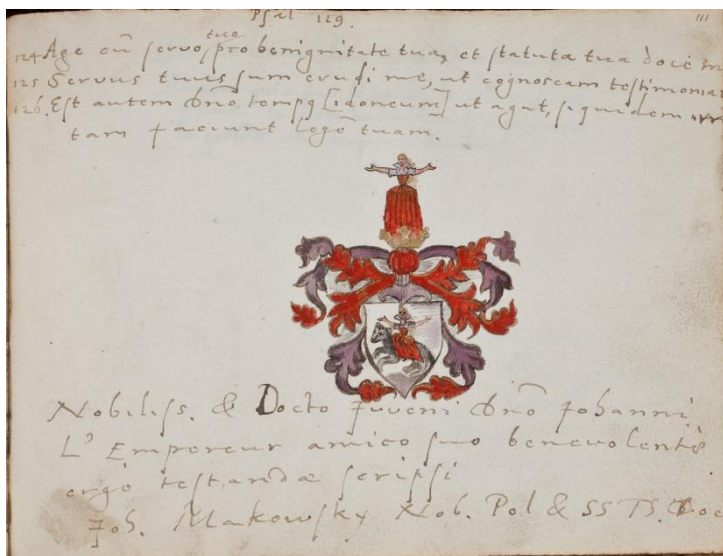 Psal 119.
111
124 Age cū servo tuo pro benignitate tua, et statuta tua doce m
125 Servus tuus sum erudi me, ut cognoscam testimonia
126. Est autem dn̄o tempq [idoneum] ut agat, siquidem
tam faciunt legē tuam.
Nobiliss. & Docto Juveni dn̄o Johanni
L' Empereur amico suo benevolentiē
ergò testandæ scripsi
Joh. Makowsky Nob. Pol & SS Th. Doc